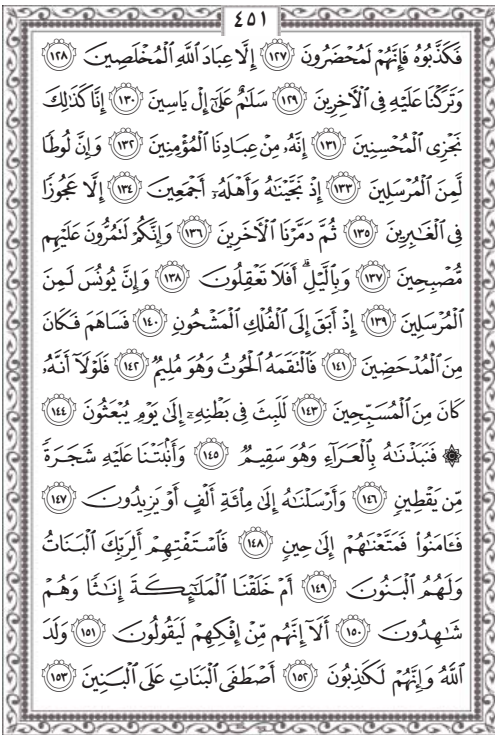 ٤٥١
فَكَذَّبُوهُ فَإِنَّهُمْ لَمُحْضَرُونَ ١٢٧ إِلَّا عِبَادَ ٱللَّهِ ٱلْمُخْلَصِينَ ١٢٨
وَتَرَكْنَا عَلَيْهِ فِى ٱلْـَٔاخِرِينَ ١٢٩ سَلَٰمٌ عَلَىٰٓ إِلْ يَاسِينَ ١٣٠ إِنَّا كَذَٰلِكَ
نَجْزِى ٱلْمُحْسِنِينَ ١٣١ إِنَّهُۥ مِنْ عِبَادِنَا ٱلْمُؤْمِنِينَ ١٣٢ وَإِنَّ لُوطًا
لَّمِنَ ٱلْمُرْسَلِينَ ١٣٣ إِذْ نَجَّيْنَٰهُ وَأَهْلَهُۥٓ أَجْمَعِينَ ١٣٤ إِلَّا عَجُوزًا
فِى ٱلْغَٰبِرِينَ ١٣٥ ثُمَّ دَمَّرْنَا ٱلْـَٔاخَرِينَ ١٣٦ وَإِنَّكُمْ لَتَمُرُّونَ عَلَيْهِم
مُّصْبِحِينَ ١٣٧ وَبِٱلَّيْلِ ۗ أَفَلَا تَعْقِلُونَ ١٣٨ وَإِنَّ يُونُسَ لَمِنَ
ٱلْمُرْسَلِينَ ١٣٩ إِذْ أَبَقَ إِلَى ٱلْفُلْكِ ٱلْمَشْحُونِ ١٤٠ فَسَاهَمَ فَكَانَ
مِنَ ٱلْمُدْحَضِينَ ١٤١ فَٱلْتَقَمَهُ ٱلْحُوتُ وَهُوَ مُلِيمٌ ١٤٢ فَلَوْلَآ أَنَّهُۥ
كَانَ مِنَ ٱلْمُسَبِّحِينَ ١٤٣ لَلَبِثَ فِى بَطْنِهِۦٓ إِلَىٰ يَوْمِ يُبْعَثُونَ ١٤٤
۞ فَنَبَذْنَٰهُ بِٱلْعَرَآءِ وَهُوَ سَقِيمٌ ١٤٥ وَأَنۢبَتْنَا عَلَيْهِ شَجَرَةً
مِّن يَقْطِينٍ ١٤٦ وَأَرْسَلْنَٰهُ إِلَىٰ مِا۟ئَةِ أَلْفٍ أَوْ يَزِيدُونَ ١٤٧
فَـَٔامَنُوا۟ فَمَتَّعْنَٰهُمْ إِلَىٰ حِينٍ ١٤٨ فَٱسْتَفْتِهِمْ أَلِرَبِّكَ ٱلْبَنَاتُ
وَلَهُمُ ٱلْبَنُونَ ١٤٩ أَمْ خَلَقْنَا ٱلْمَلَٰٓئِكَةَ إِنَٰثًا وَهُمْ
شَٰهِدُونَ ١٥٠ أَلَآ إِنَّهُم مِّنْ إِفْكِهِمْ لَيَقُولُونَ ١٥١ وَلَدَ
ٱللَّهُ وَإِنَّهُمْ لَكَٰذِبُونَ ١٥٢ أَصْطَفَى ٱلْبَنَاتِ عَلَى ٱلْبَنِينَ ١٥٣